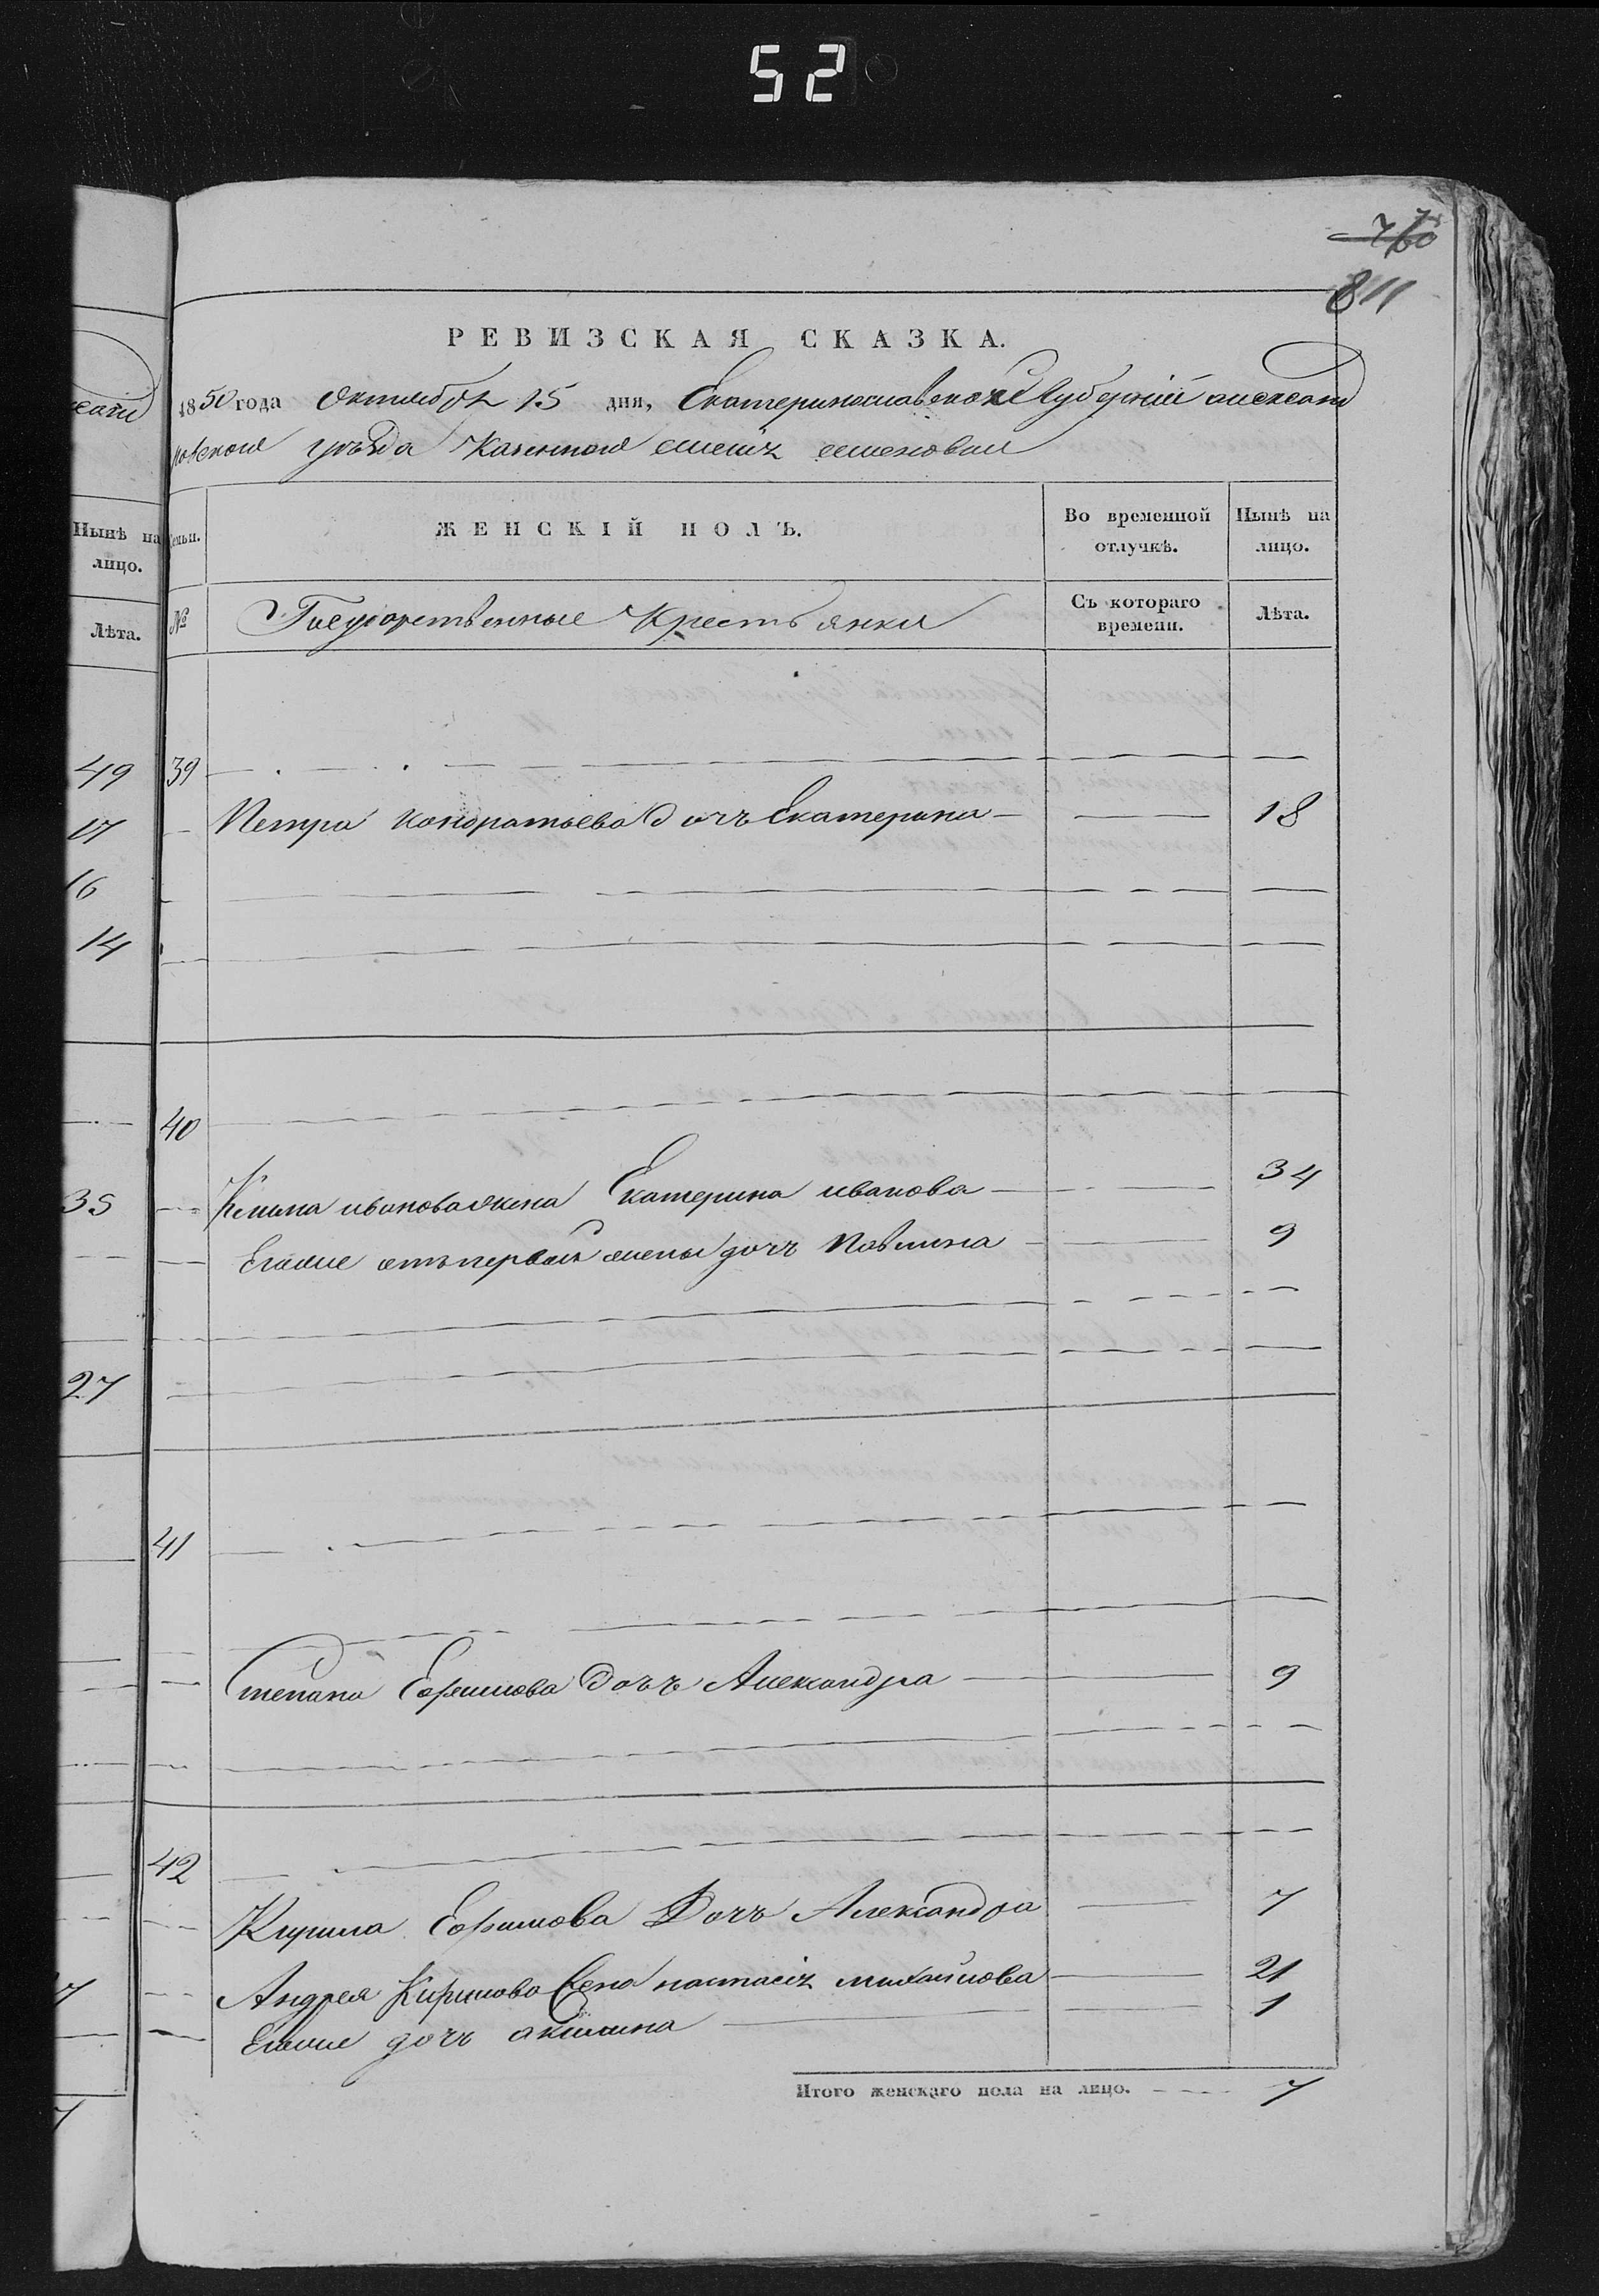 52
760
811
РЕВИЗСКАЯ СКАЗКА.
1850 года Октября 15 дня, Екатеринославской Губерніи александ
ровского уѣзда Казенного селенія семеновки
Нынѣ на лицо.
Лѣта.
49
17
16
14
35
27
Семьи.
ЖЕНСКІЙ ПОЛЪ.
Во временной отлучкѣ.
Нынѣ на лицо.
№
Государственные Крестьянки
Съ котораго времени.
Лѣта.
39
Петра Кондратьева дочь Екатерина — 18
40
Клима иванова жена Екатерина иванова — 34
Егоже отъ первой жены дочь Павлина — 9
41
Степана Ефимова Дочь Александра — 9
42
Кирила Ефимова Дочь Александра — 7
Андрея Кирилова Жена настасія михайлова — 21
Егоже дочь акилина — 1
Итого женскаго пола на лицо. — 7